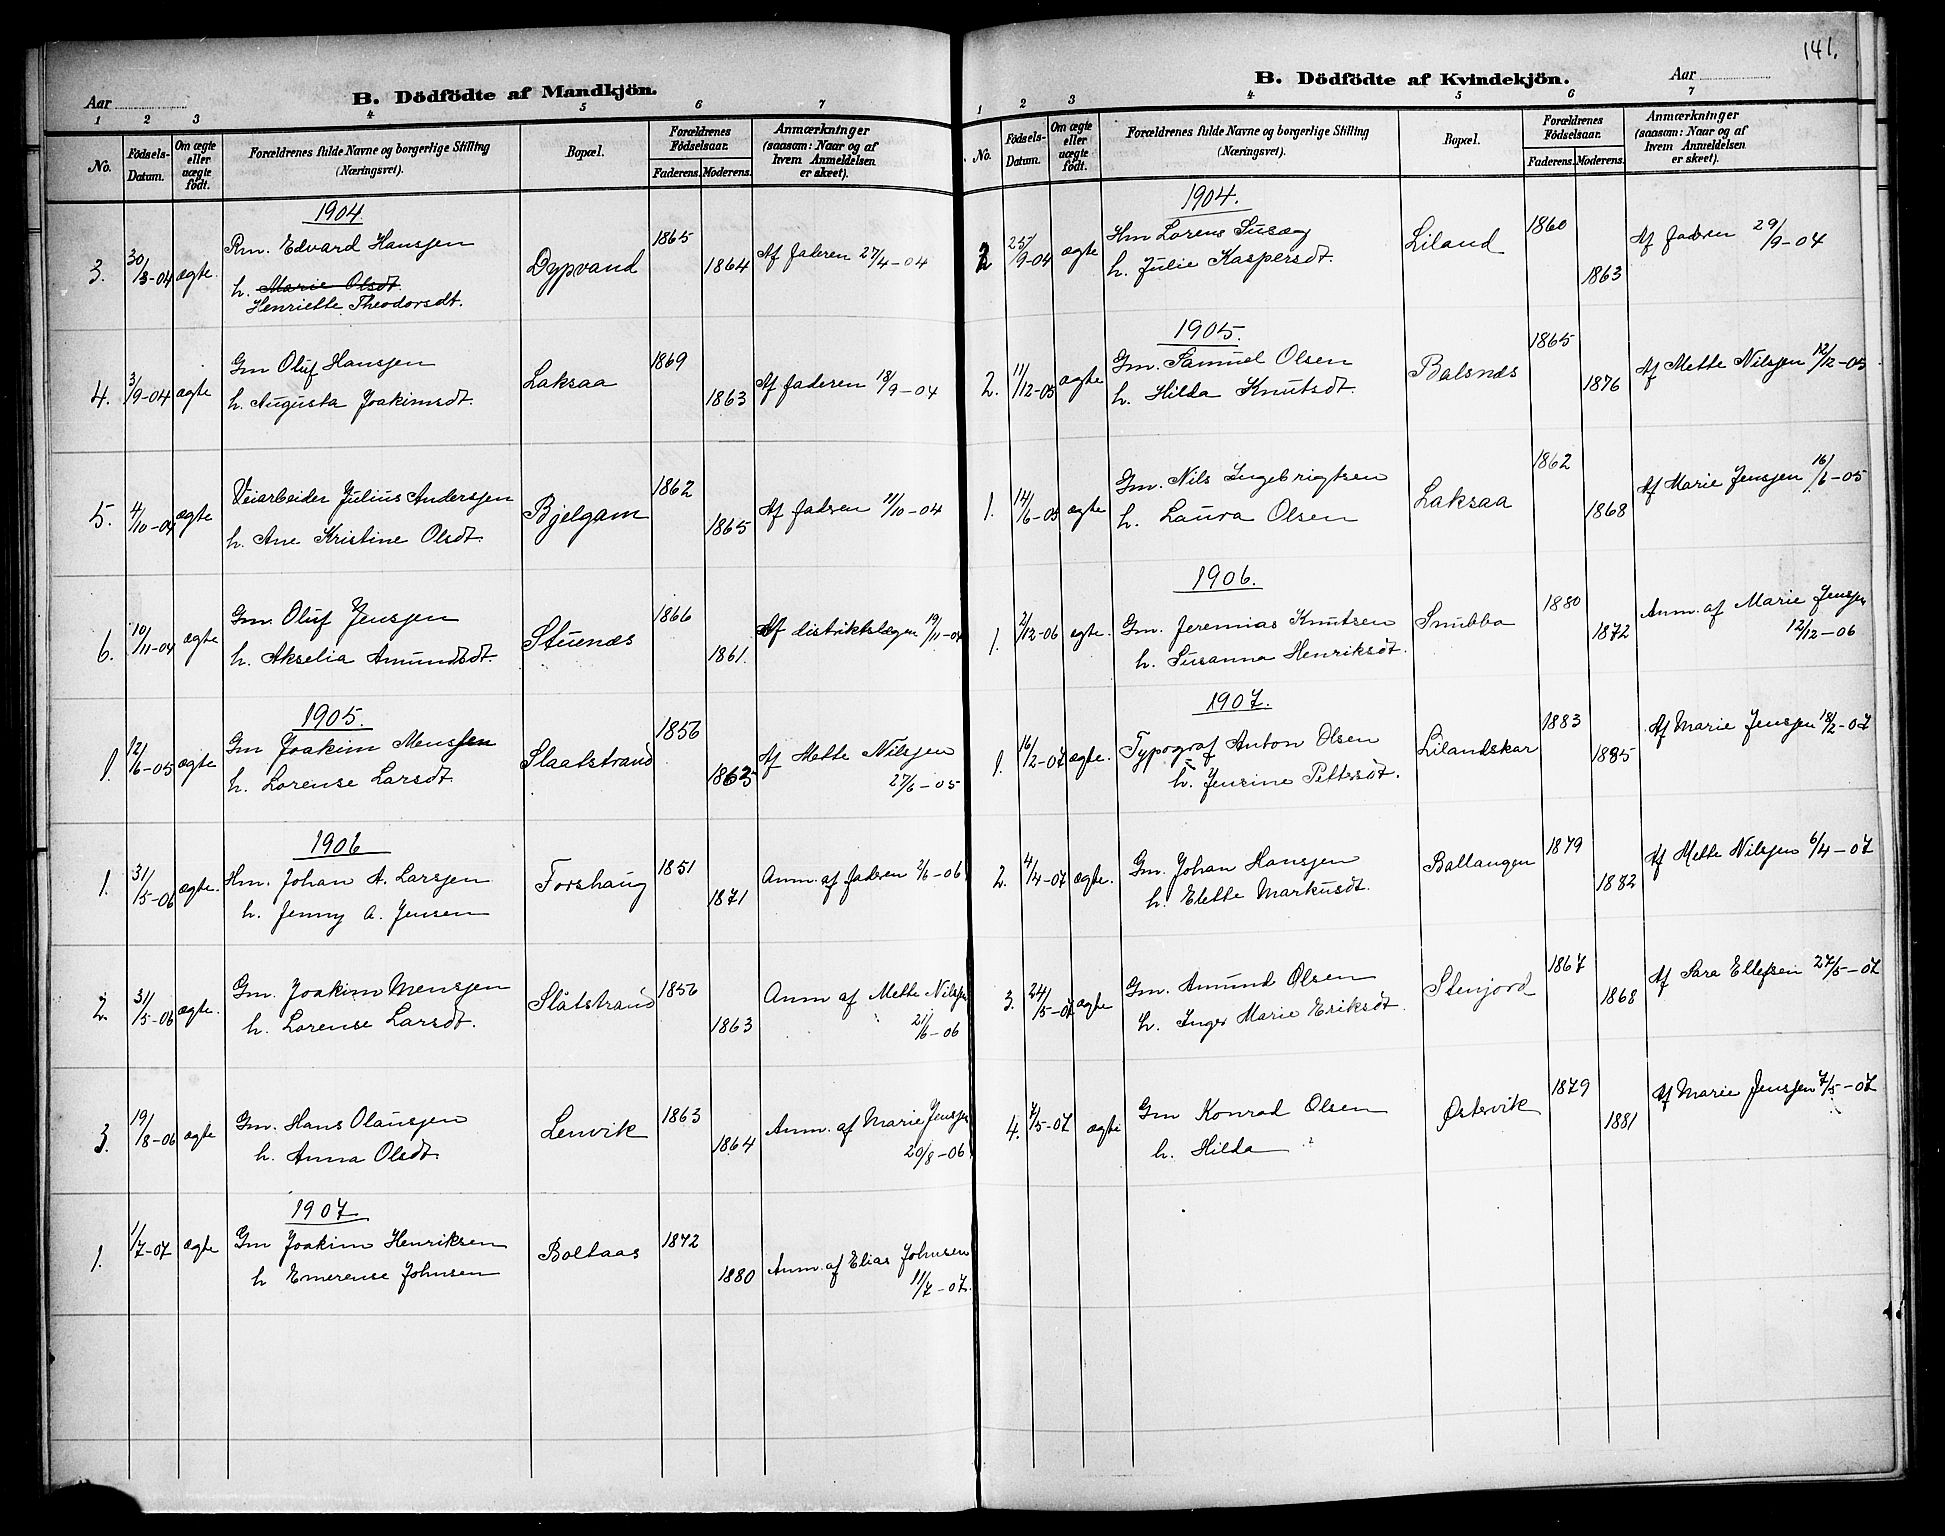 141.
Aar
B. Dödfödte af Mandkjön.
1 2 3 4 5 6 7
No. Födsels-Datum. Om ægte eller uægte födt. Forældrenes fulde Navne og borgerlige Stilling (Næringsvei). Bopæl. Forældrenes Födselsaar. Faderens. Moderens. Anmærkninger (saasom: Naar og af hvem Anmeldelsen er skeet).
1904.
3. 30/3-04 ægte Rm. Edvard Hansjen Dypvand 1865 1864 Af faderen 27/4-04
h. Marie Olsdt.
Henriette Theodorsdt.
4. 3/9-04 ægte Gm Oluf Hansjen Laksaa 1869 1863 Af faderen 18/9-04
h. Augusta Joakimsdt.
5. 4/10-04 ægte Veiarbeider Julius Andersjen Bjelgam 1862 1865 Af faderen 11/10-04
h. Ane Kristine Olsdt.
6. 10/11-04 ægte Gm. Oluf Jensjen Stuenæs 1866 1861. Af distriktslægen 19/11-04
h. Akselia Amundsdt.
1905.
1. 12/6-05 ægte Gm Joakim Mensjen Slaatstrand 1856 Af Mette Nilsjen
h. Lorense Larsdt. 27/6-05
1906
1. 31/5-06 ægte. Hm. Johan A. Larsjen Forshaug 1851 1871 Anm. af faderen 2/6-06
h. Jenny A. Jensen
2. 31/5-06 ægte. Gm. Joakim Mensjen Slåtstrand 1856 1863 Anm af Mette Nilsjen
h. Lorense Larsdt. 21/6-06
3. 19/8-06 ægte Gm. Hans Olausjen Lenvik 1863 1864 Anm. af Marie Jensjen
h. Anna Olsdt. 20/8-06
1907
1. 1/7-07 ægte Gm Joakim Henriksen Boltaas 1872 1880 Anm. af Elias Johnsen
h Emerense Johnsen 11/7-07.
B. Dödfödte af Kvindekjön.
Aar
1 2 3 4 5 6 7
No. Födsels-Datum. Om ægte eller uægte födt. Forældrenes fulde Navne og borgerlige Stilling (Næringsvei). Bopæl. Forældrenes Födselsaar. Faderens. Moderens. Anmærkninger (saasom: Naar og af hvem Anmeldelsen er skeet).
1904.
2 25/9-04 ægte Hm Lorens Liland 1860 1863 Af faderen 29/9-04
h. Julie Kaspersdt.
1905.
2. 11/12-05 ægte Gm. Samuel Olsen Balsnæs 1865 1876 Af Mette Nilsjen 12/12-05
h. Hilda Knutsdt.
1. 14/6-05 ægte Gm. Nils Ingebrigtsen Laksaa 1862 1868 Af Marie Jensjen 16/6-05
h. Laura Olsen
1906.
1. 2/12-06 ægte. Gm. Jeremias Knutsen Snubba 1880 1872 Anm. af Marie Jensjen
h. Susanna Henriksdt. 12/12-06
1907.
1. 16/2-07 ægte. Typograf Anton Olsen Lilandskar 1883 1885 Af Marie Jensjen 18/2-07
h. Jensine Pettersdt.
2. 4/4-07 ægte. Gm. Johan Hansjen Ballangen 1879 1882 Af Mette Nilsjen 6/4-07
h. Elette Markusdt.
3. 24/5-07 ægte Gm. Amund Olsen Stenjord 1867 1868 Af Sara Ellefsen 27/5-07
h. Inger Marie Eriksdt.
4. 7/5-07 ægte Gm Konrad Olsen Østervik 1879 1881 Af Marie Jensjen 7/5-07
h. Hilda ?